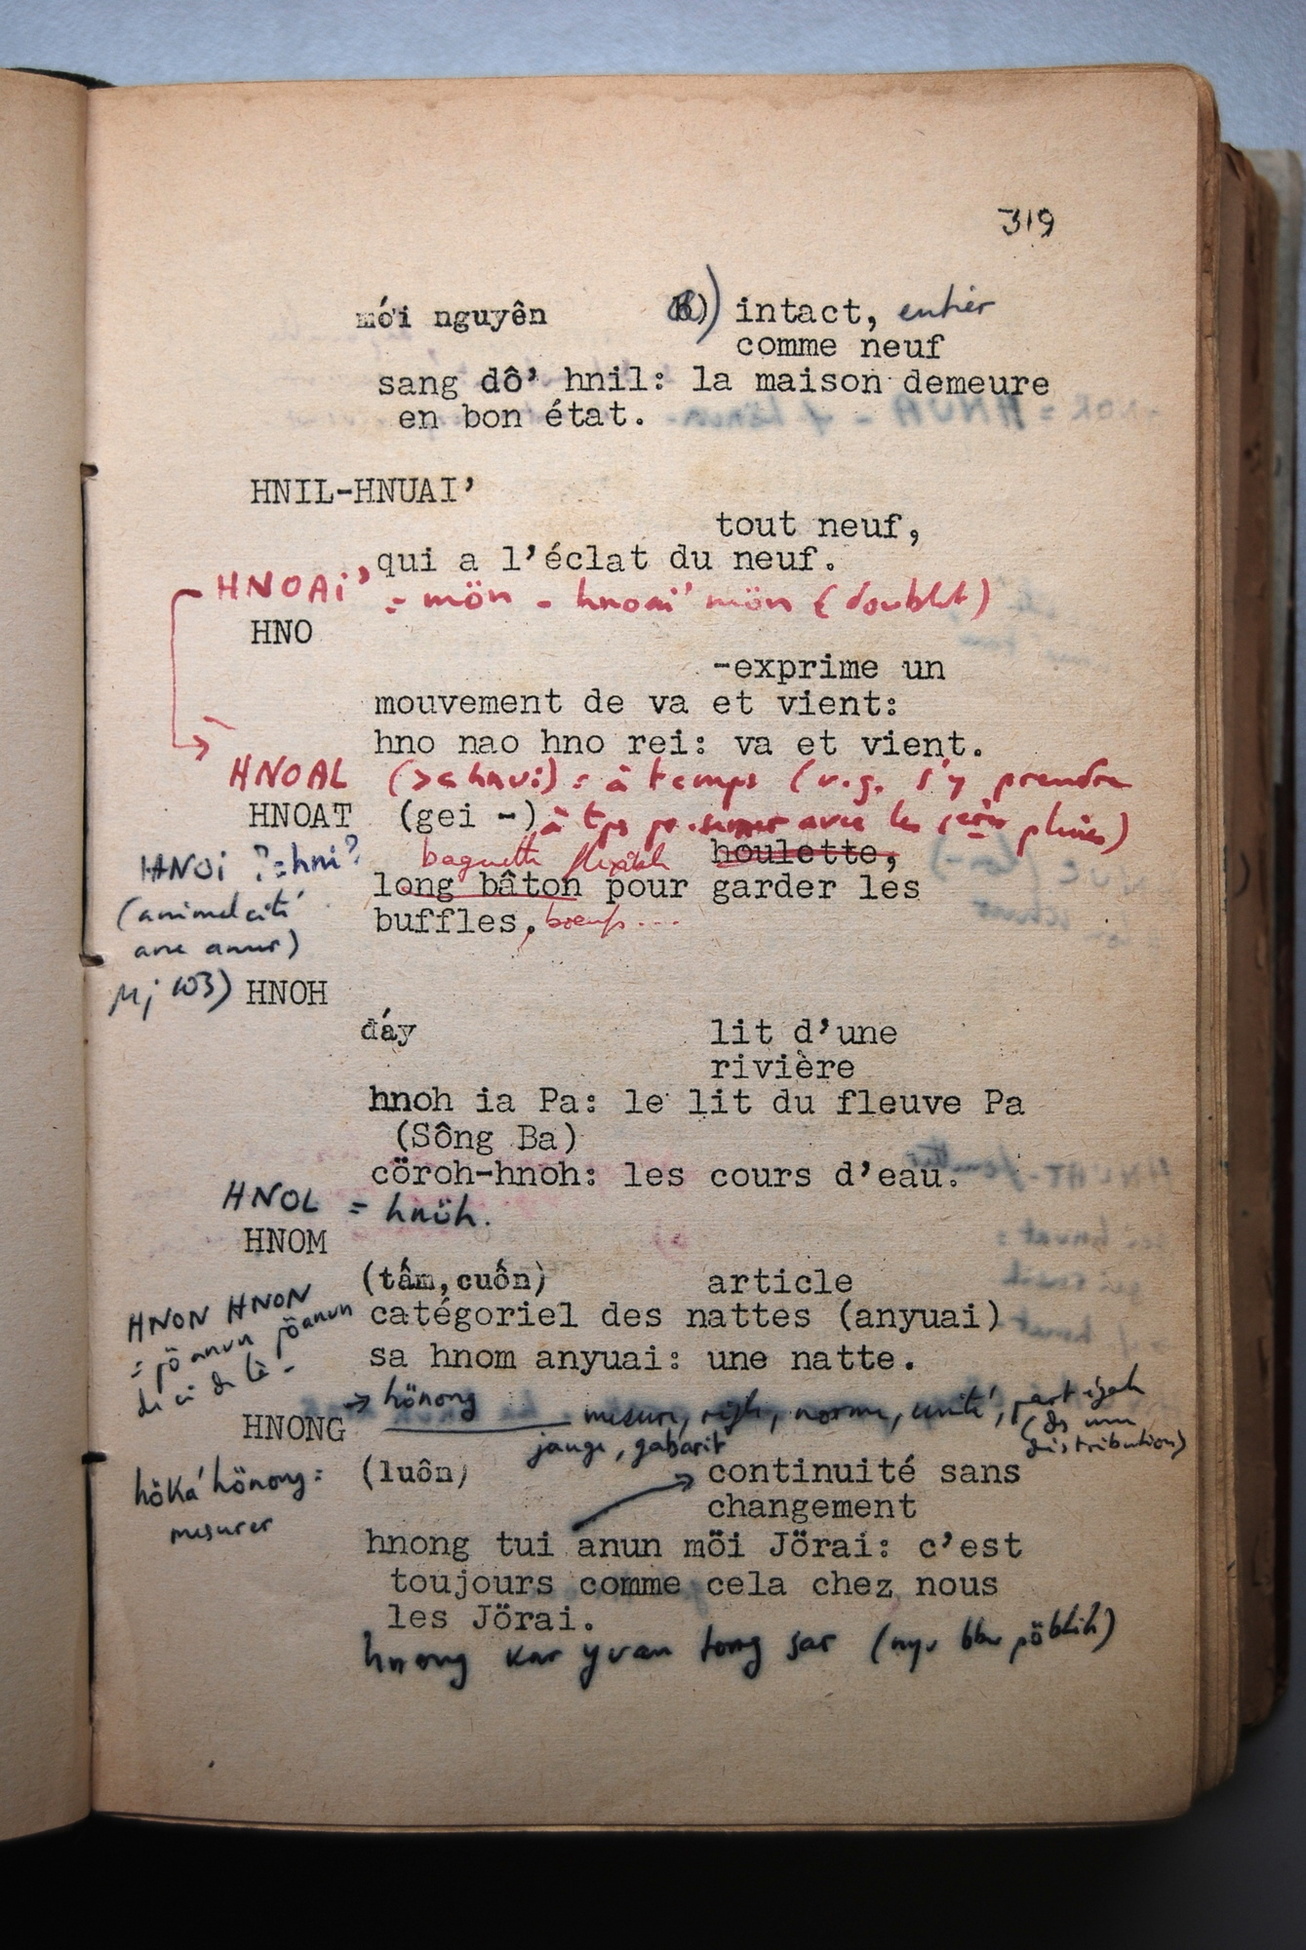 319
mới nguyên B) intact, entier
comme neuf
sang dô' hnil: la maison demeure
en bon état.
HNIL-HNUAI'
tout neuf,
qui a l'éclat du neuf.
HNOAI' = mön - hnoai' mön (doublet)
HNO
-exprime un
mouvement de va et vient:
hno nao hno rei: va et vient.
HNOAL = à temps (v.g. s'y prendre
HNOAT (gei -) à tps avec les pluies)
HNOI ? = hni?
baguette flexible houlette,
long bâton pour garder les
(animal cité
buffles, boeufs...
avec amur)
Mj 103) HNOH
đáy lit d'une
rivière
hnoh ia Pa: le lit du fleuve Pa
(Sông Ba)
cöroh-hnoh: les cours d'eau.
HNOL = hnöh.
HNOM
(tấm, cuốn) article
HNON HNON
catégoriel des nattes (anyuai)
= pö anun pöanun
sa hnom anyuai: une natte.
de ci de là -
→ hönong mesure, règle, norme, unité, part égale
HNONG (ds une
jauge, gabarit distribution)
höká hönong: (luôn) continuité sans
mesurer changement
hnong tui anun möi Jörai: c'est
toujours comme cela chez nous
les Jörai.
hnong kar yuan tong sar